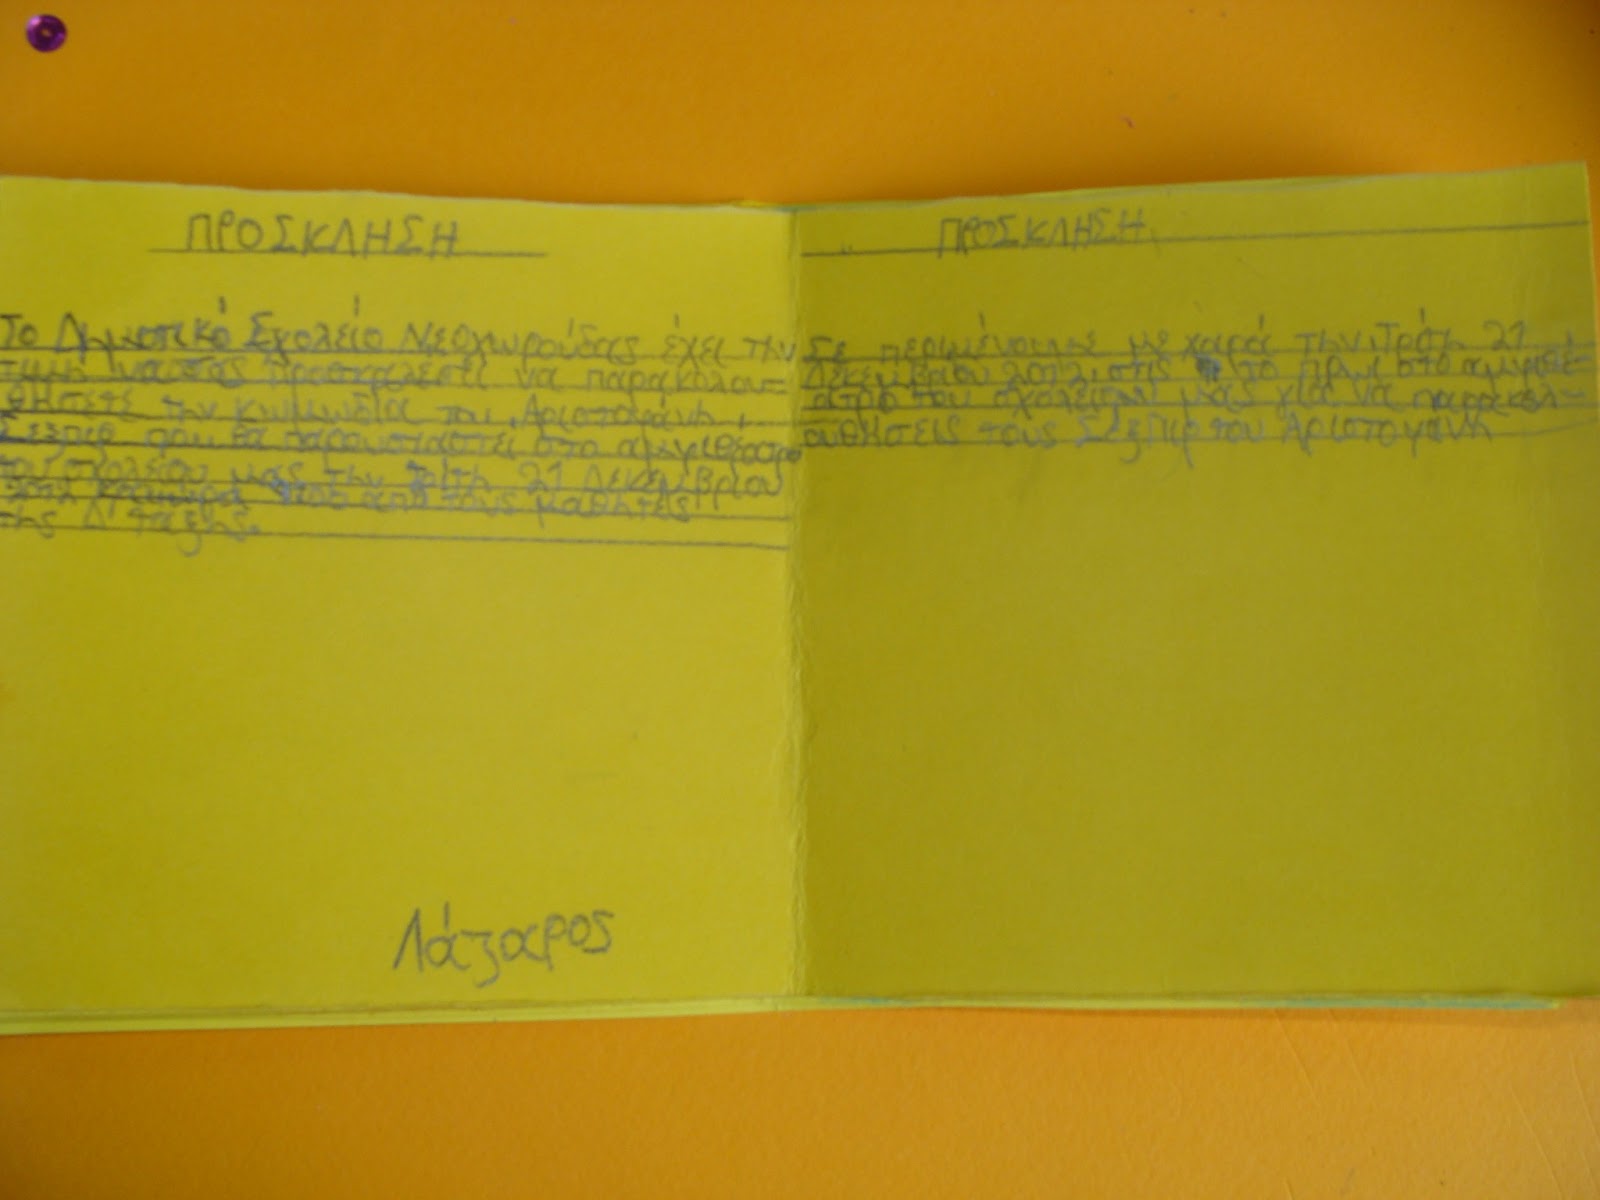 ΠΡΟΣΚΛΗΣΗ
Το Δημοτικό Σχολείο Νεοχωρούδας έχει την
τιμή να σας προσκαλέσει να παρακολου-
θήσετε την κωμωδία του Αριστοφάνη
Σεξπιρ που θα παρουσιαστεί στο αμφιθέατρο
του σχολείου μας την Τρίτη 21 Δεκεμβρίου
2012 από τους μαθητές
της Δ' τάξης.
Λάζαρος
ΠΡΟΣΚΛΗΣΗ
Σε περιμένουμε με χαρά την Τρίτη 21
Δεκεμβρίου 2012 στις το πρωί στο αμφιθέ-
ατρο του σχολείου μας για να παρακολ-
ουθήσεις τους Σεξπιρ του Αριστοφάνη